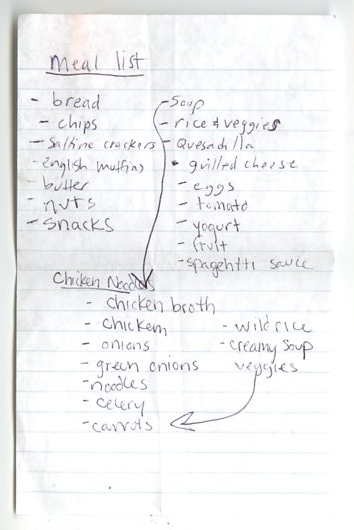 Meal list
- bread
- chips
- Saltine crackers
- English muffins
- butter
- nuts
- snacks
- Soup
- rice & veggies
- Quesadilla
• grilled cheese
- eggs
- tomato
- yogurt
- fruit
- spagehtti sauce
Chicken Noodles
- chicken broth
- chicken
- onions
- green onions
- noodles
- celery
- carrots
- wild rice
- creamy soup
veggies